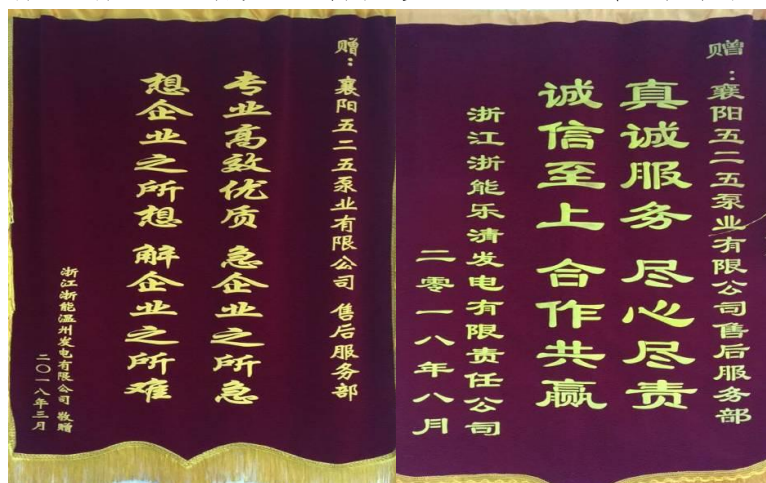 赠：襄阳五二五泵业有限公司 售后服务部
专业高效优质 急企业之所急
想企业之所想 解企业之所难
浙江浙能温州发电有限公司 敬赠
二〇一八年三月
赠：襄阳五二五泵业有限公司售后服务部
真诚服务 尽心尽责
诚信至上 合作共赢
浙江浙能乐清发电有限责任公司
二零一八年八月